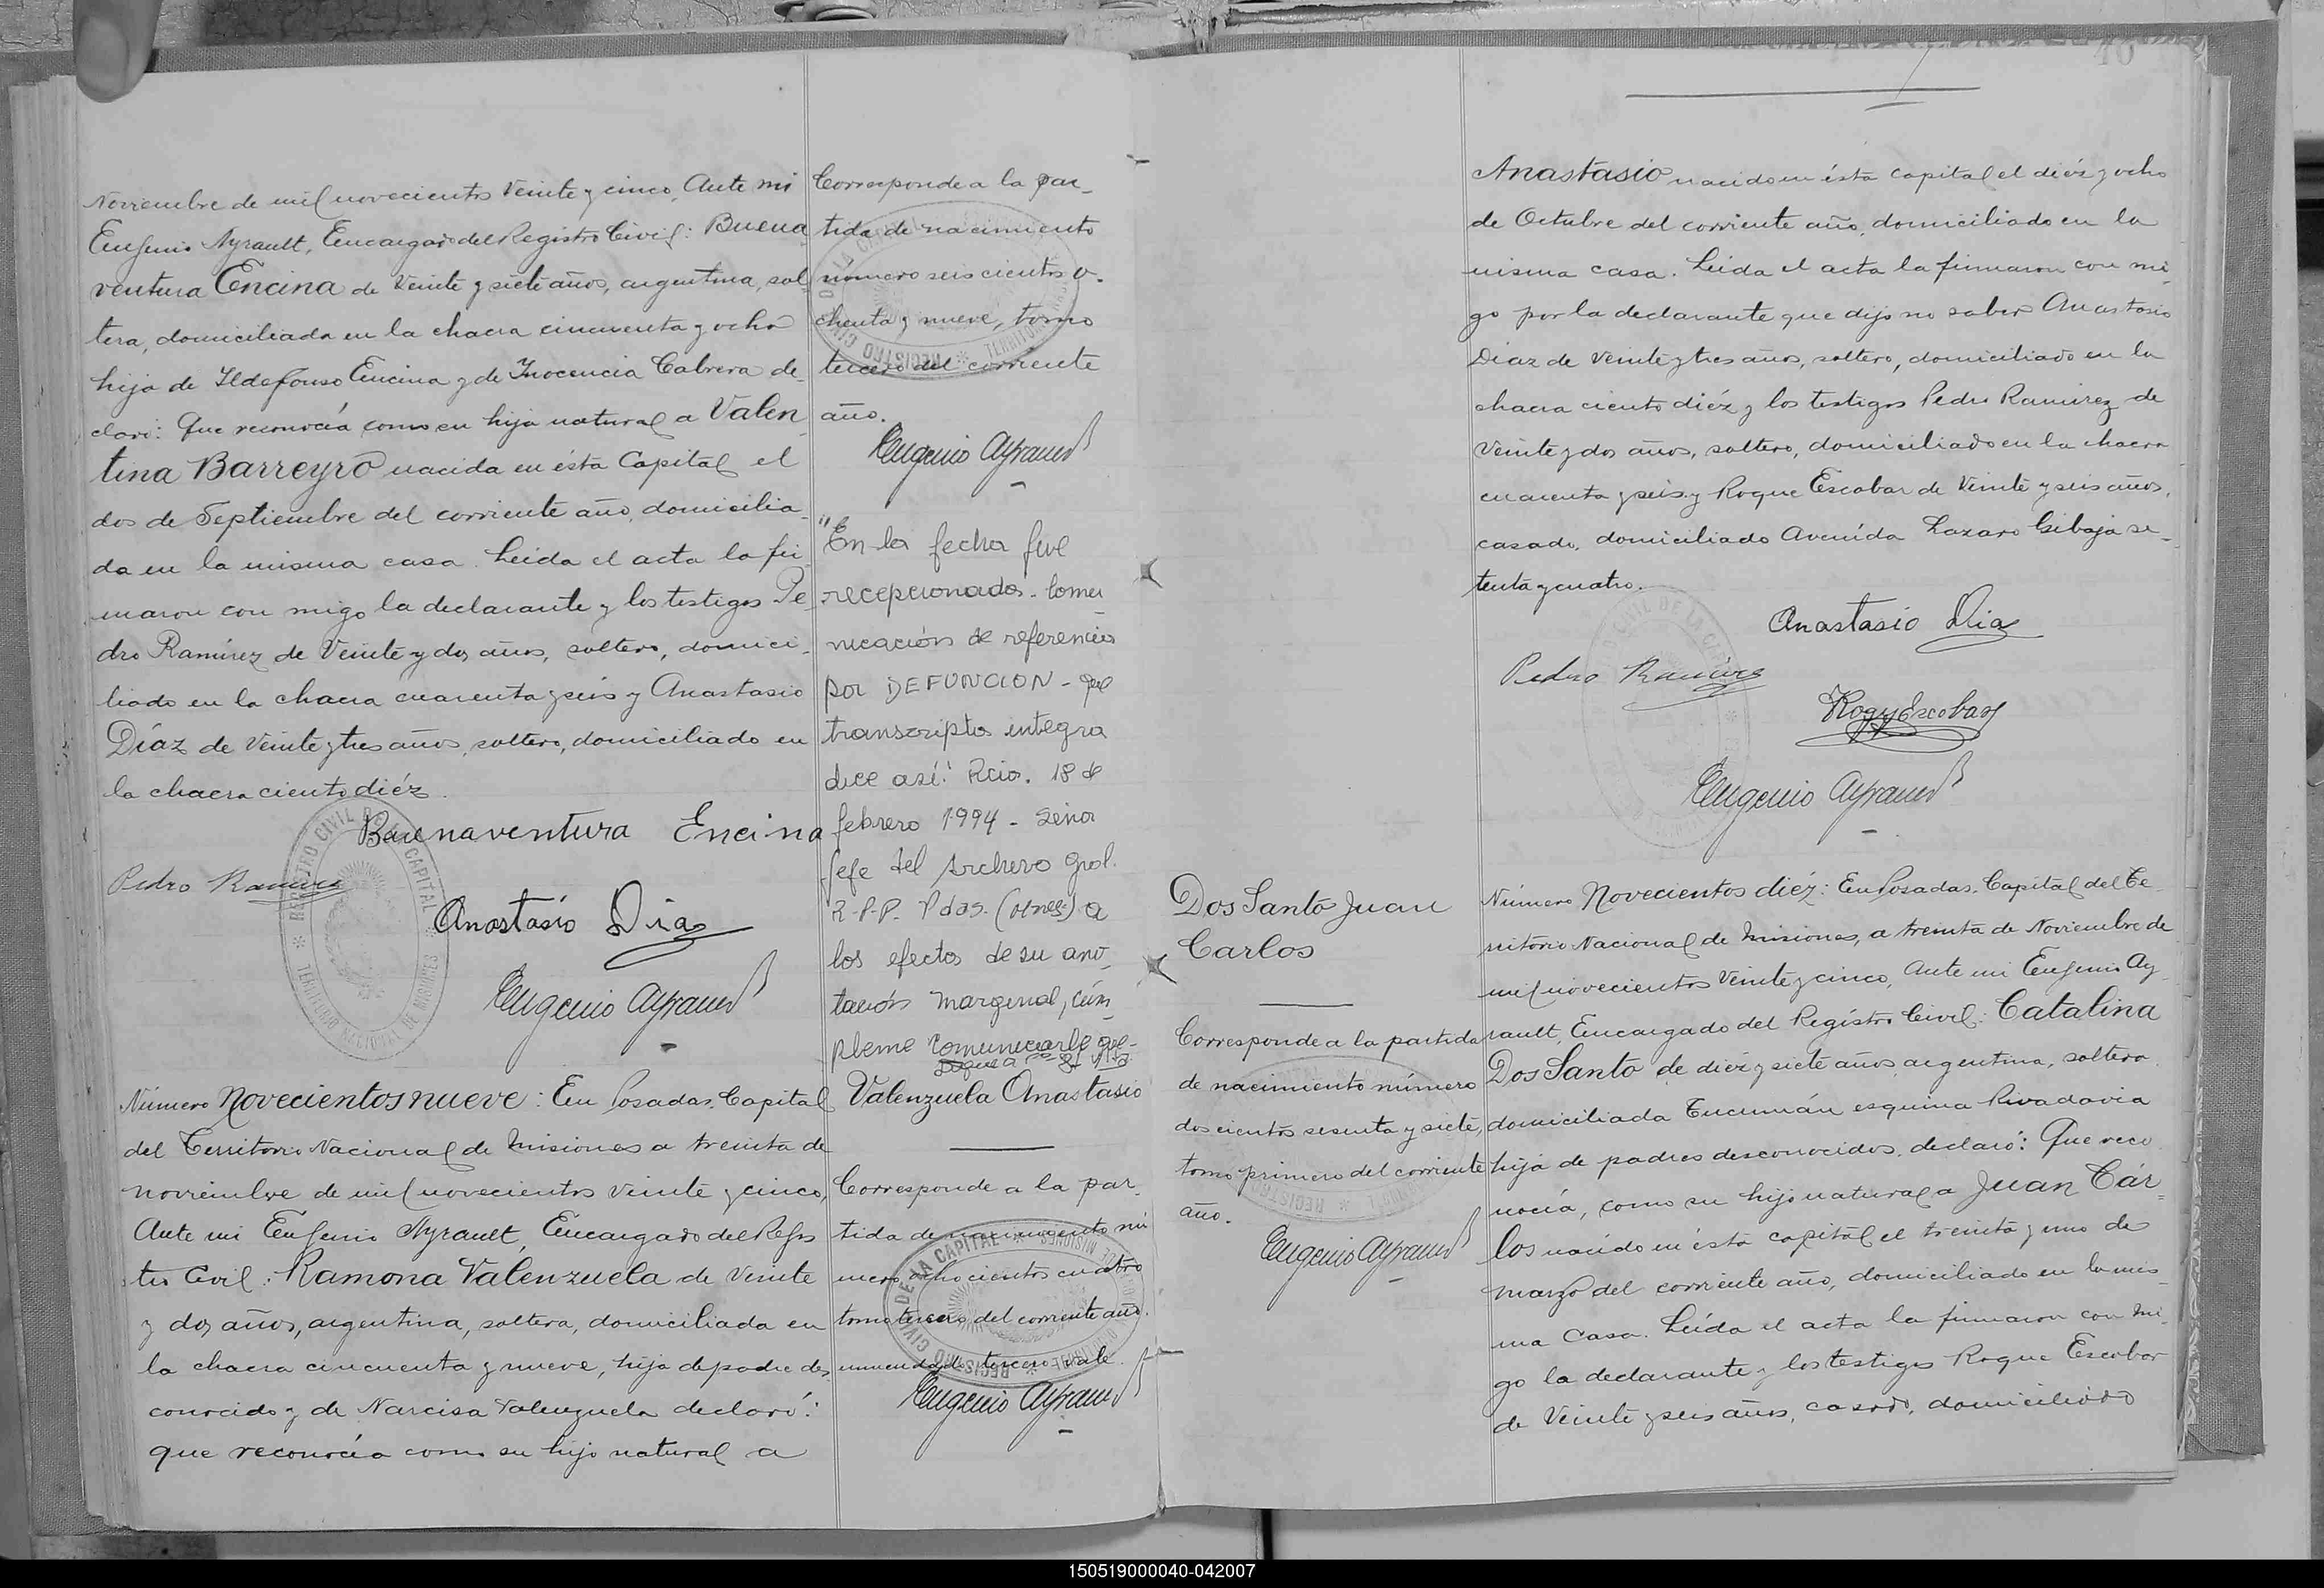 Noviembre de mil novecientos Veinte y cinco, Ante mi
Eugenio Ayrault, Encargado del Registro Civil: Buena
ventura Encina de Veinte y siete años, argentina, sol
tera, domiciliada en la chacra cincuenta y ocho
hija de Ildefonso Encina y de Inocencia Cabrera de
claró: Que reconocía como su hija natural a Valen
tina Barreyro nacida en ésta Capital el
dos de Septiembre del corriente año, domicilia
da en la misma casa. Leida el acta la fir
maron con migo la declarante y los testigos Pe
dro Ramírez de Veinte y dos años, soltero, domici
liado en la chacra cuarenta y seis y Anastasio
Díaz de Veinte y tres años, soltero, domiciliado en
la chacra ciento diéz.
Buenaventura Encina
Pedro Ramirez
Anastasio Diaz
Eugenio Ayrault
Número Novecientos nueve: En Posadas, Capital
del Territorio Nacional de Misiones a treinta de
noviembre de mil novecientos veinte y cinco,
Ante mi Eugenio Ayrault, Encargado del Regis
tro Civil: Ramona Valenzuela de Veinte
y dos años, argentina, soltera, domiciliada en
la chacra cincuenta y nueve, hija de padre des
conocido y de Narcisa Valenzuela declaró:
que reconocía como su hijo natural a
Corresponde a la par_
tida de nacimiento
número seiscientos o_
chenta y nueve, tomo
tercero del corriente
año.
Eugenio Ayrault
"En la fecha fue
recepcionada comu
nicación de referencia
por DEFUNCION - que
transcripta integra
dice así: Rcia. 18 de
febrero 1994 - Señor
Jefe del Archivo Gral.
R-P-P. Pdas. (Mnes) a
los efectos de su ano_
tación marginal, cúm_
pleme comunicarle que-
Valenzuela Anastasio
Corresponde a la par_
tida de nacimiento nú
mero ochocientos cuatro
tomo tercero del corriente año.
enmendado tercero vale.
Eugenio Ayrault
REGISTRO CIVIL DE LA CAPITAL
TERRITORIO NACIONAL DE MISIONES
Anastasio nacido en ésta capital el diéz y ocho
de Octubre del corriente año, domiciliado en la
misma casa. Leida el acta la firmaron con mi_
go por la declarante que dijo no saber Anastasio
Diaz de Veinte y tres años, soltero, domiciliado en la
chacra ciento diéz y los testigos Pedro Ramirez de
Veinte y dos años, soltero, domiciliado en la chacra
cuarenta y seis y Roque Escobar de Veinte y seis años,
casado, domiciliado Avenida Lazaro Gibaja se_
tenta y cuatro.
Anastasio Diaz
Pedro Ramirez
Roque Escobar
Eugenio Ayrault
Dos Santo Juan
Carlos
Corresponde a la partida
de nacimiento número
doscientos sesenta y siete,
tomo primero del corriente
año.
Eugenio Ayrault
Número Novecientos diéz: En Posadas, Capital del Te_
rritorio Nacional de Misiones, a treinta de Noviembre de
mil novecientos Veinte y cinco, Ante mi Eugenio Ay
rault, Encargado del Registro Civil: Catalina
Dos Santo de diéz y siete años, argentina, soltera
domiciliada Tucumán esquina Rivadavia
hija de padres desconocidos, declaró: Que reco
nocía, como su hijo natural a Juan Cár_
los nacido en ésta capital el treinta y uno de
marzo del corriente año, domiciliado en la mis_
ma Casa. Leída el acta la firmaron con mi_
go la declarante y los testigos Roque Escobar
de Veinte y seis años, casado, domiciliado
150519000040-042007